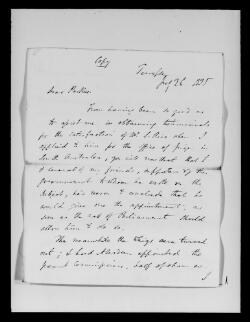 Copy
Tuesday
July 26 1835
Dear Parkes
You having been so good as
to assist me in obtaining testimonials
for the satisfaction of Mr S. Rice when I
applied to him for the office of judge in
South Australia, you will recollect that I
& several of our friends, supporters of the
government & whom he wrote on the
subject, had reason to conclude that he
would give me the appointment, as
soon as the act of Parliament should
allow him to do so.
The meanwhile the things were turned
out; & Lord Aberdeen appointed the
present Commissioners, half of them as